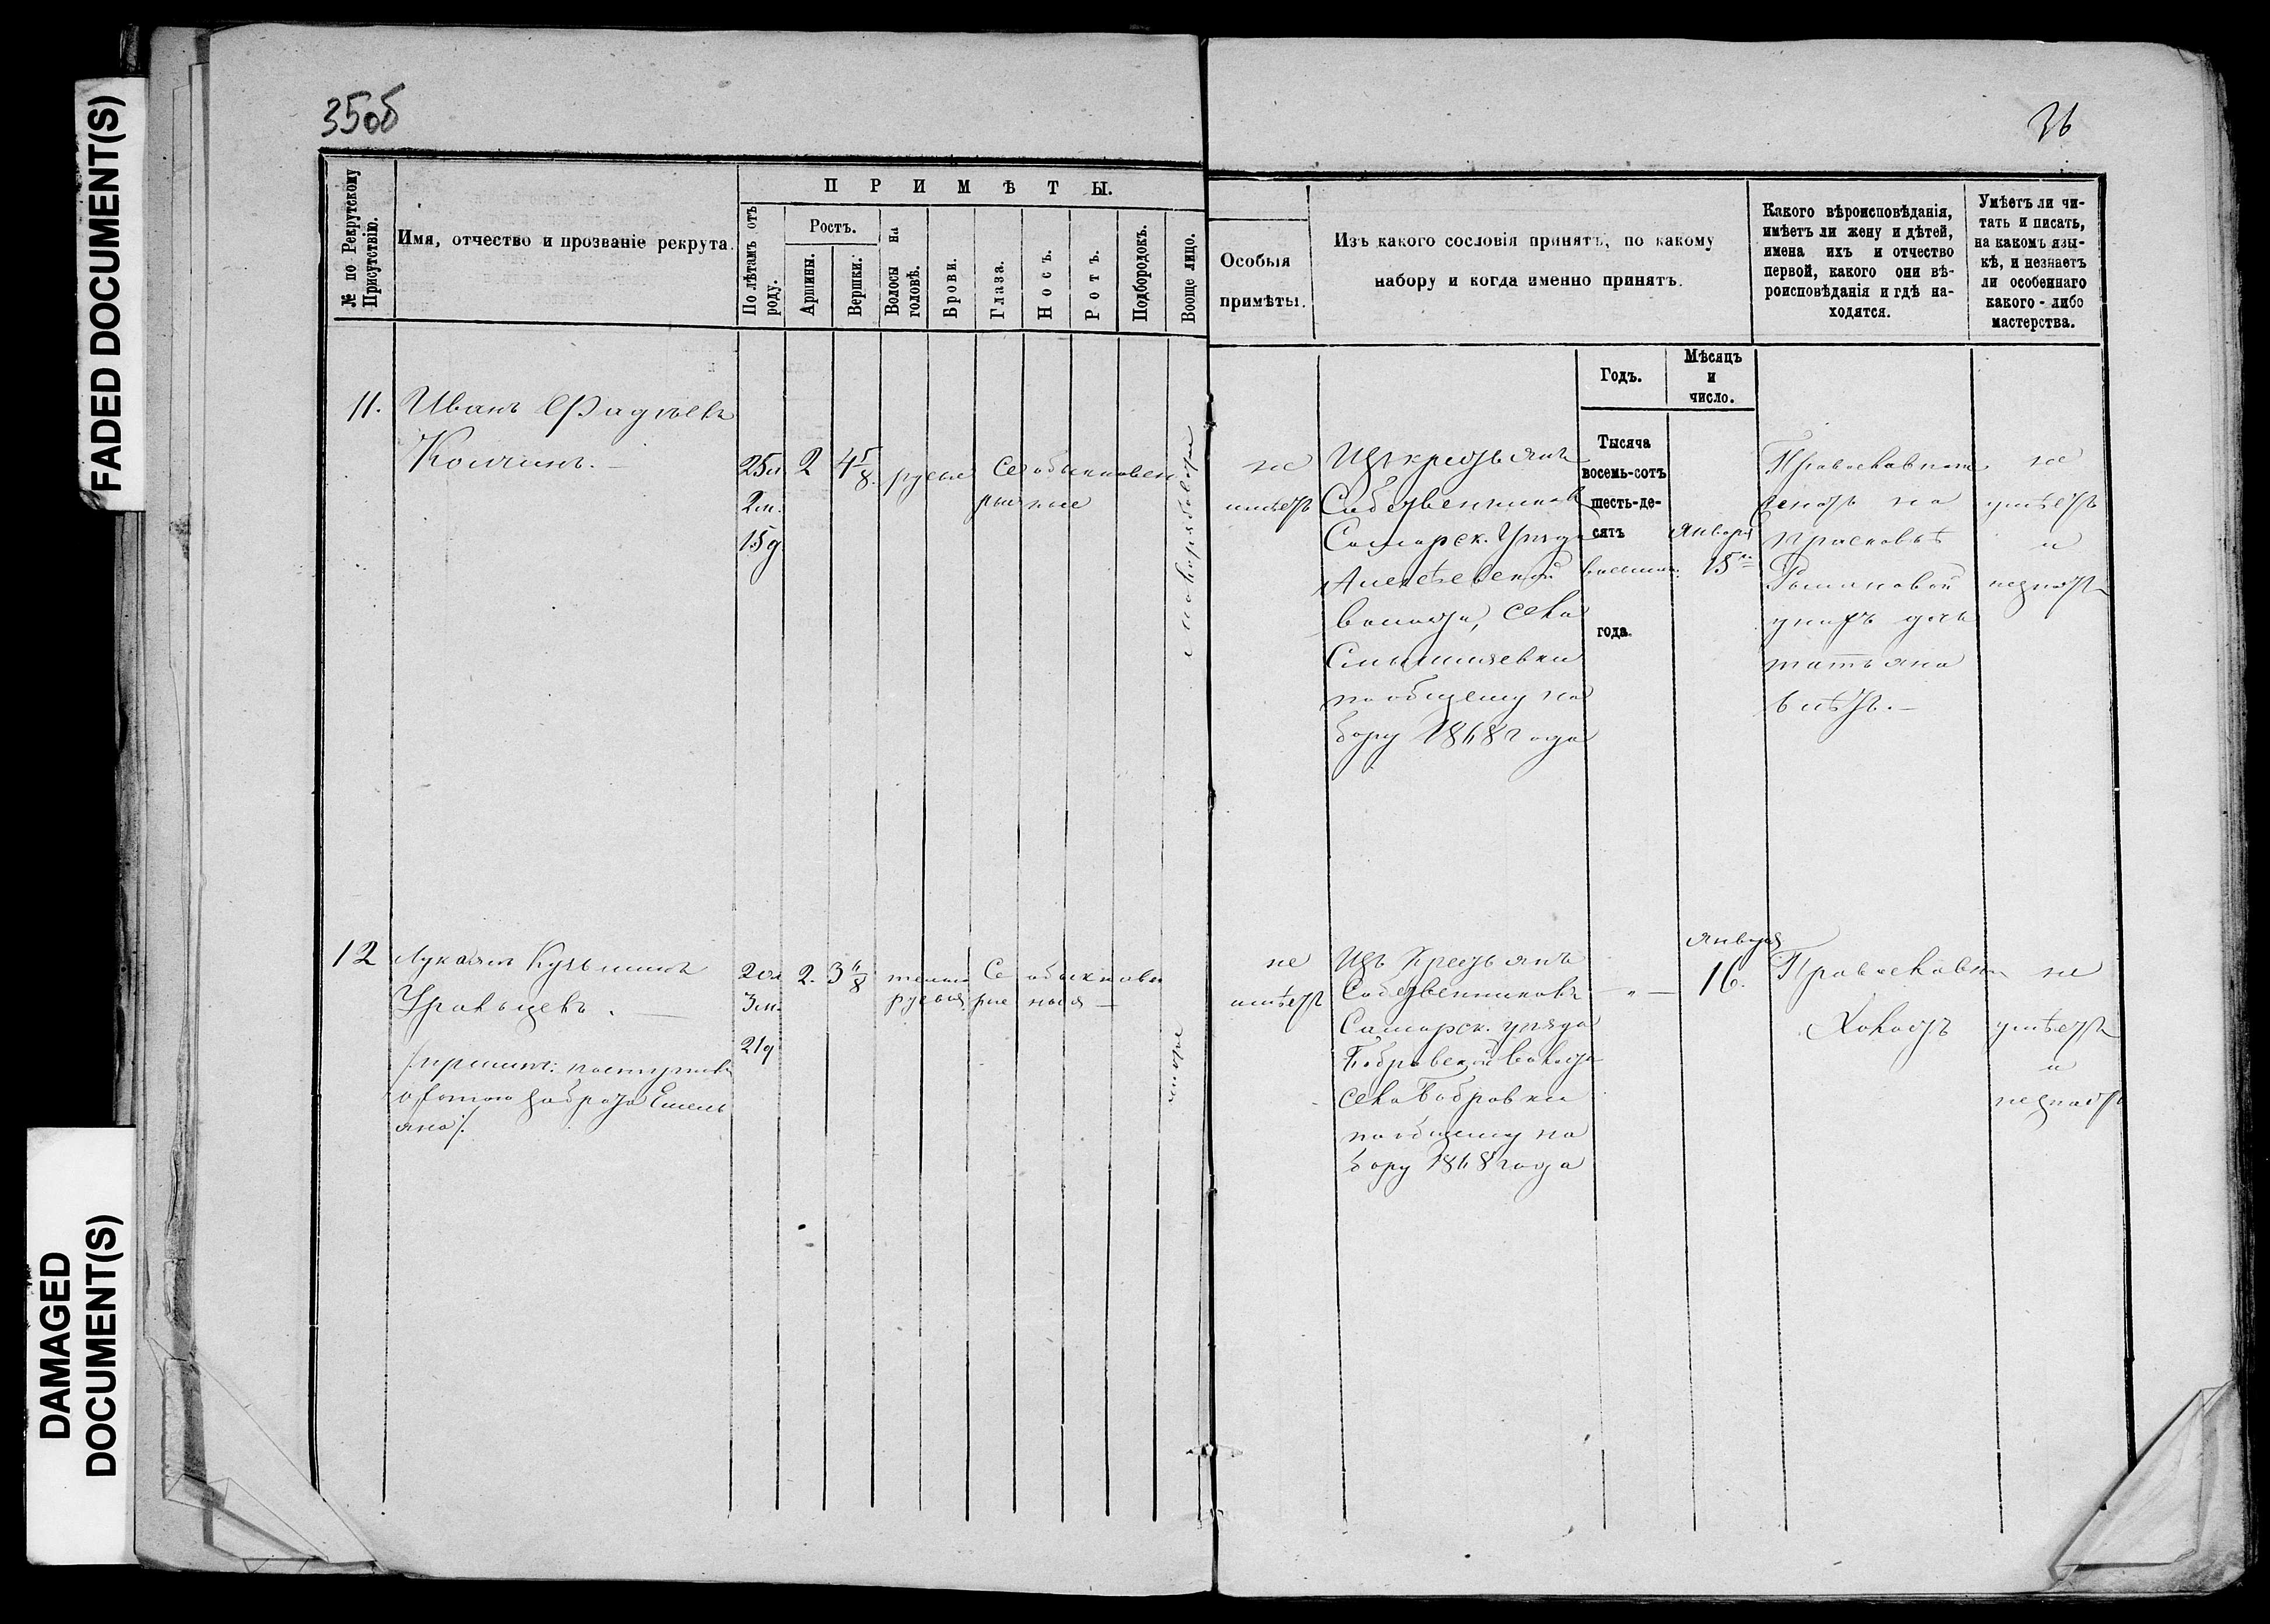 FADED DOCUMENT(S)
DAMAGED
DOCUMENT(S)
35об
36
№ по Рекрутскому
Присутствію.
Имя, отчество и прозваніе рекрута.
ПРИМѢТЫ.
По лѣтамъ отъ
роду.
Ростъ.
Аршины.
Вершки.
Волосы на
головѣ.
Брови.
Глаза.
Носъ.
Ротъ.
Подбородокъ.
Вооще лицо.
Особыя
примѣты.
Изъ какого сословія принятъ, по какому
набору и когда именно принятъ.
Какого вѣроисповѣданія,
имѣетъ ли жену и дѣтей,
имена ихъ и отчество
первой, какого они вѣ-
роисповѣданія и гдѣ на-
ходятся.
Умѣетъ ли чи-
тать и писать,
на какомъ язы-
кѣ, и незнаетъ
ли особеннаго
какого-либо
мастерства.
Годъ.
Мѣсяцъ
и
число.
11.
Иванъ Фадѣевъ
25л
2м.
15д
2
4 5/8.
русые
Се
рые
обыкновен
ные
не
имѣетъ
Изъ крестьянъ
Собственников
Самарск. Уѣзда
Алексѣевской
волости, села
Смышляевки
по общему на
бору 1868 года
Тысяча
восемь-сотъ
шесть-де-
сятъ
года.
Января
15
Православнаго
женатъ на
Прасковьѣ
Романовой
у нихъ дочь
Татьяна
6 лѣтъ.
не
умѣетъ
и
незнаетъ
12
Лукаянъ Кузьминъ
20л
3м.
21д
2.
3 4/8
темно
русые
Се
рые
обыкнове
ные
чистое
не
имѣетъ
Изъ Крестьянъ
Собственниковъ
Самарск. уѣзда
Бобровской волости
села Бобровки
по общему на
бору 1868 года
Января
16.
Православнаго
Холостъ
не
умѣетъ
и
незнаетъ